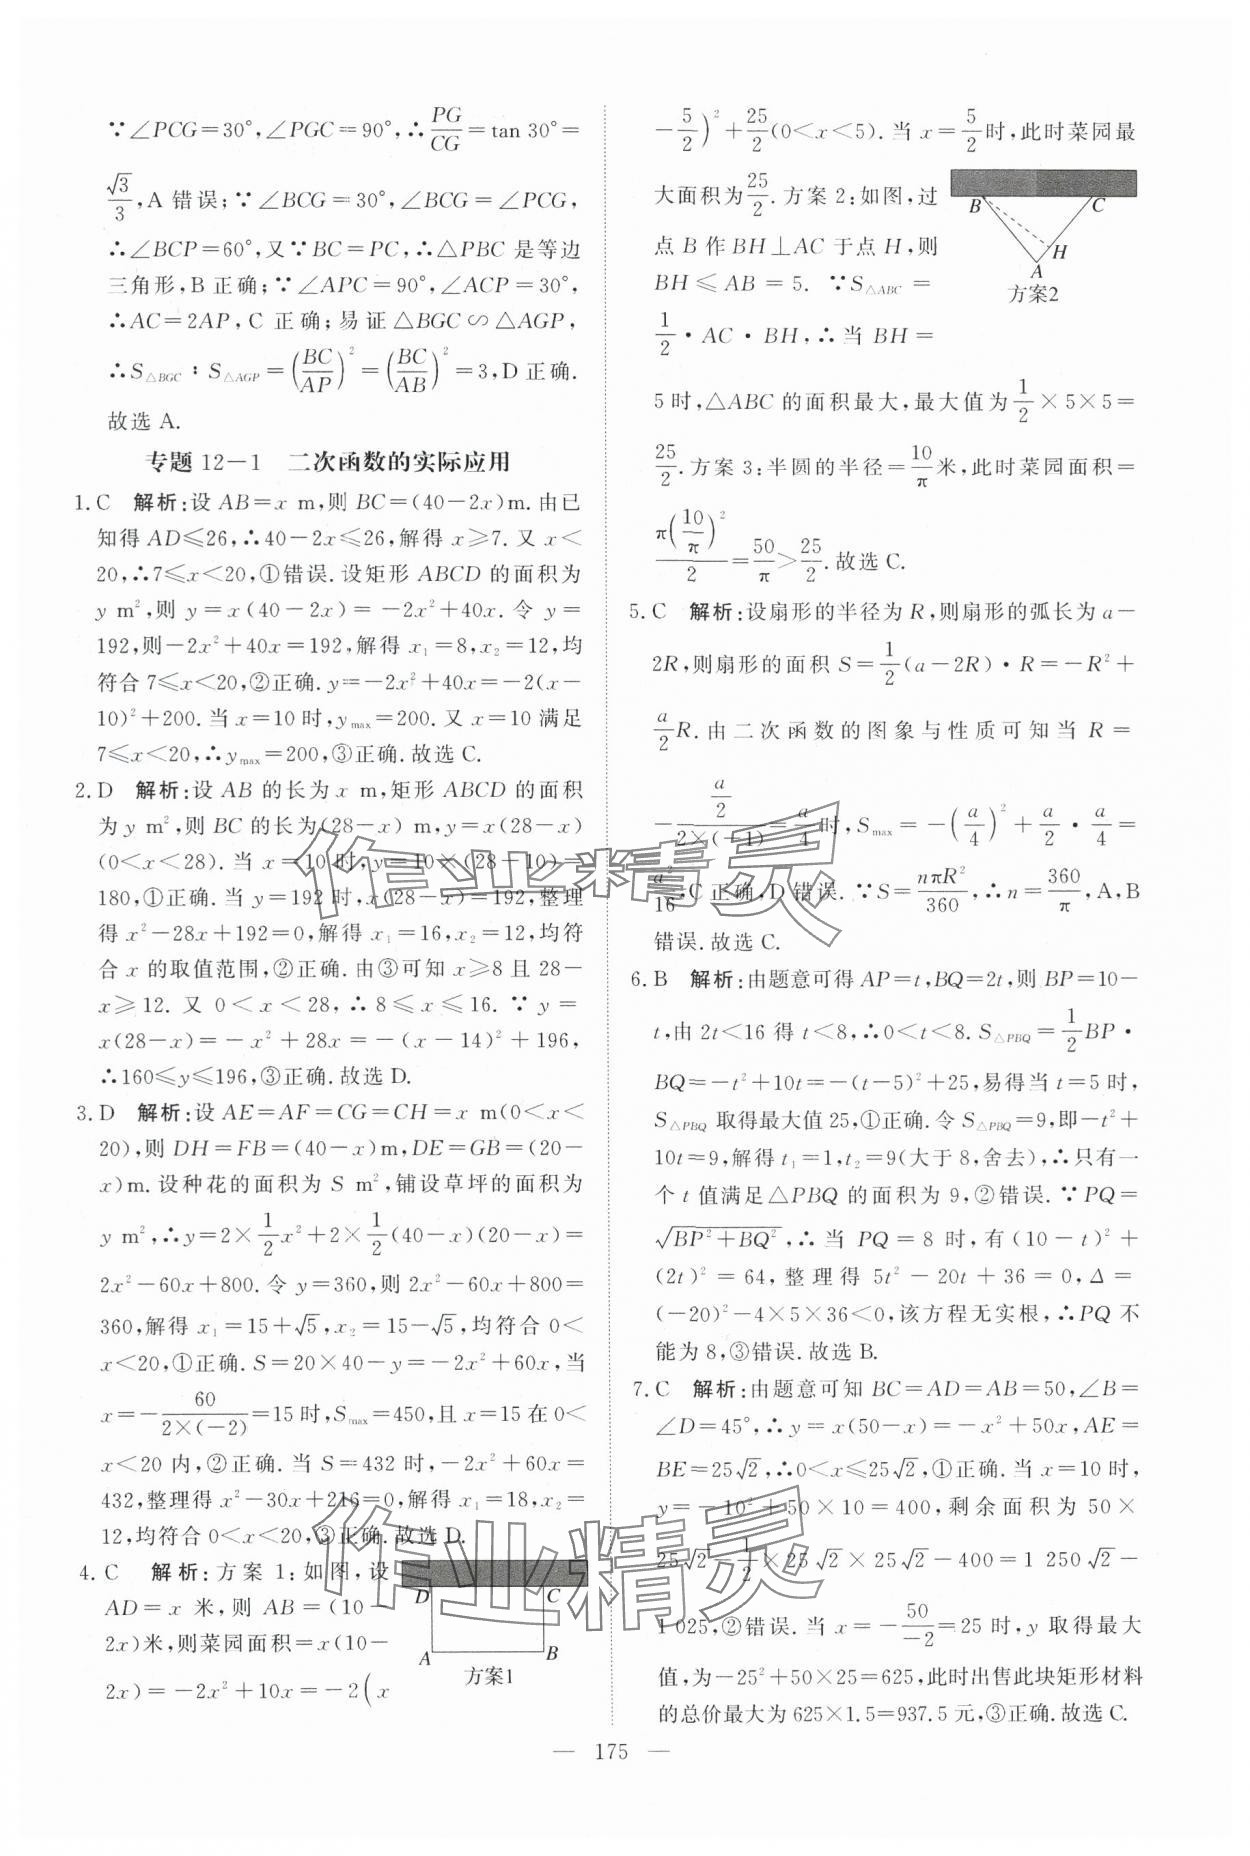 ∵∠PCG=30°,∠PGC=90°,∴PG/CG=tan 30°=
√3/3,A 错误;∵∠BCG=30°,∠BCG=∠PCG,
∴∠BCP=60°,又∵BC=PC,∴△PBC 是等边
三角形,B 正确;∵∠APC=90°,∠ACP=30°,
∴AC=2AP,C 正确;易证△BGC∽△AGP,
∴S△BGC : S△AGP=(BC/AP)²=(BC/AB)²=3,D 正确.
故选 A.
专题 12-1 二次函数的实际应用
1.C 解析:设 AB=x m,则 BC=(40-2x)m.由已
知得 AD≤26,∴40-2x≤26,解得 x≥7. 又 x<
20,∴7≤x<20,①错误.设矩形 ABCD 的面积为
y m²,则 y=x(40-2x)=-2x²+40x. 令 y=
192,则-2x²+40x=192,解得 x₁=8,x₂=12,均
符合 7≤x<20,②正确.y=-2x²+40x=-2(x-
10)²+200. 当 x=10 时,yₘₐₓ=200. 又 x=10 满足
7≤x<20,∴yₘₐₓ=200,③正确.故选 C.
2.D 解析:设 AB 的长为 x m,矩形 ABCD 的面积
为 y m²,则 BC 的长为(28-x) m,y=x(28-x)
(0<x<28). 当 x=10 时,y=10×(28-10)=
180,①正确. 当 y=192 时,x(28-x)=192,整理
得 x²-28x+192=0,解得 x₁=16,x₂=12,均符
合 x 的取值范围,②正确. 由③可知 x≥8 且 28-
x≥12. 又 0<x<28,∴8≤x≤16. ∵y=
x(28-x)=-x²+28x=-(x-14)²+196,
∴160≤y≤196,③正确.故选 D.
3.D 解析:设 AE=AF=CG=CH=x m(0<x<
20),则 DH=FB=(40-x)m,DE=GB=(20-
x)m. 设种花的面积为 S m²,铺设草坪的面积为
y m²,∴y=2×1/2x²+2×1/2(40-x)(20-x)=
2x²-60x+800. 令 y=360,则 2x²-60x+800=
360,解得 x₁=15+√5,x₂=15-√5,均符合 0<
x<20,①正确. S=20×40-y=-2x²+60x,当
x=-60/(2×(-2))=15 时,Sₘₐₓ=450,且 x=15 在 0<
x<20 内,②正确. 当 S=432 时,-2x²+60x=
432,整理得 x²-30x+216=0,解得 x₁=18,x₂=
12,均符合 0<x<20,③正确.故选 D.
4.C 解析:方案 1:如图,设
AD=x 米,则 AB=(10-
2x)米,则菜园面积=x(10-
2x)=-2x²+10x=-2(x
D C
A B
方案1
-5/2)²+25/2(0<x<5). 当 x=5/2时,此时菜园最
大面积为25/2. 方案 2:如图,过
点 B 作 BH⊥AC 于点 H,则
BH≤AB=5. ∵S△ABC=
1/2·AC·BH,∴当 BH=
B C
H
A
方案2
5 时,△ABC 的面积最大,最大值为1/2×5×5=
25/2. 方案 3:半圆的半径=10/π米,此时菜园面积=
π(10/π)²/2=50/π>25/2.故选 C.
5.C 解析:设扇形的半径为 R,则扇形的弧长为 a-
2R,则扇形的面积 S=1/2(a-2R)·R=-R²+
a/2R. 由二次函数的图象与性质可知当 R=
-(a/2)/(2×(-1))=a/4时,Sₘₐₓ=-(a/4)²+a/2·a/4=
a²/16,C 正确,D 错误. ∵S=nπR²/360,∴n=360/π,A,B
错误.故选 C.
6.B 解析:由题意可得 AP=t,BQ=2t,则 BP=10-
t,由 2t<16 得 t<8,∴0<t<8. S△PBQ=1/2BP·
BQ=-t²+10t=-(t-5)²+25,易得当 t=5 时,
S△PBQ 取得最大值 25,①正确. 令 S△PBQ=9,即-t²+
10t=9,解得 t₁=1,t₂=9(大于 8,舍去),∴只有一
个 t 值满足△PBQ 的面积为 9,②错误. ∵PQ=
√(BP²+BQ²),∴当 PQ=8 时,有 (10-t)²+
(2t)²=64,整理得 5t²-20t+36=0,Δ=
(-20)²-4×5×36<0,该方程无实根,∴PQ 不
能为 8,③错误.故选 B.
7.C 解析:由题意可知 BC=AD=AB=50,∠B=
∠D=45°,∴y=x(50-x)=-x²+50x,AE=
BE=25√2,∴0<x≤25√2,①正确. 当 x=10 时,
y=-10²+50×10=400,剩余面积为 50×
25√2-1/2×25√2×25√2-400=1 250√2-
1 025,②错误. 当 x=-50/-2=25 时,y 取得最大
值,为-25²+50×25=625,此时出售此块矩形材料
的总价最大为 625×1.5=937.5 元,③正确.故选 C.
— 175 —
作业精灵
作业精灵